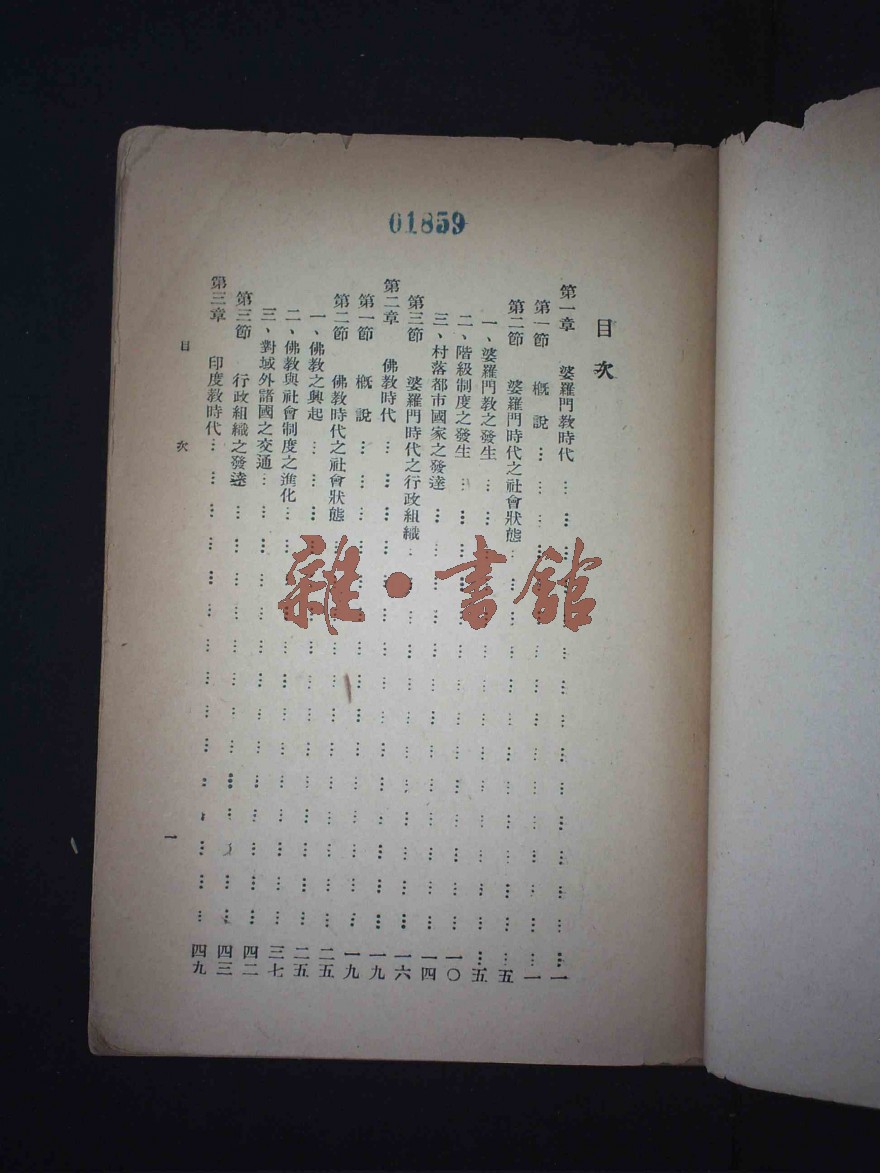 01859
目次
第一章　婆羅門教時代…………一
第一節　概說…………一
第二節　婆羅門時代之社會狀態…………五
一、婆羅門教之發生…………五
二、階級制度之發生…………一〇
三、村落都市國家之發達…………一四
第三節　婆羅門時代之行政組織…………一六
第二章　佛教時代…………一九
第一節　概說…………一九
第二節　佛教時代之社會狀態…………二五
一、佛教之興起…………二五
二、佛教與社會制度之進化…………三七
三、對域外諸國之交通…………四二
第三節　行政組織之發達…………四三
第三章　印度教時代…………四九
目次　一
雜·書館